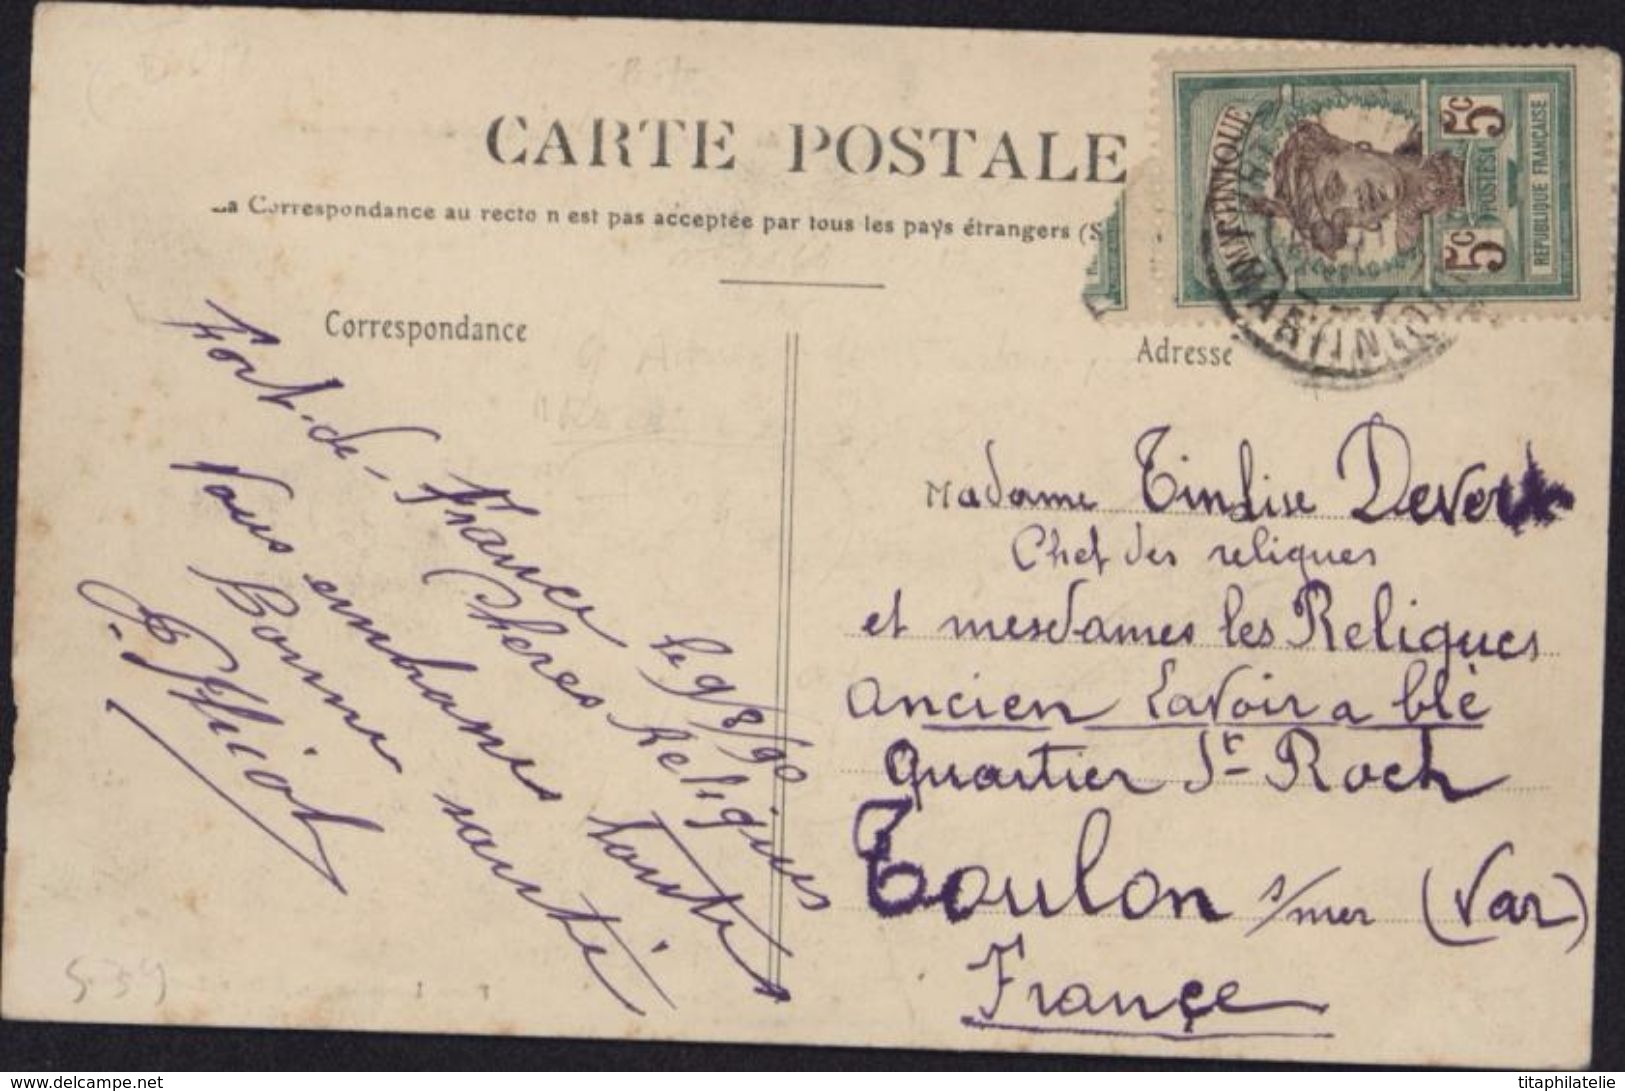 CARTE POSTALE
La Correspondance au recto n'est pas acceptée par tous les pays étrangers (S
Correspondance
Adresse
MARTINIQUE
5c
5c
POSTES
REPUBLIQUE FRANÇAISE
MARTINIQUE
Fort-de-France le 9/8/20
Chères Reliques
Vous embrasse toutes
Bonne santé
Madame Tindise Dever
Chef des reliques
et mesdames les Reliques
ancien Lavoir a blé
Quartier St Roch
Toulon s/mer (Var)
France
www.delcampe.net
titaphilatelie